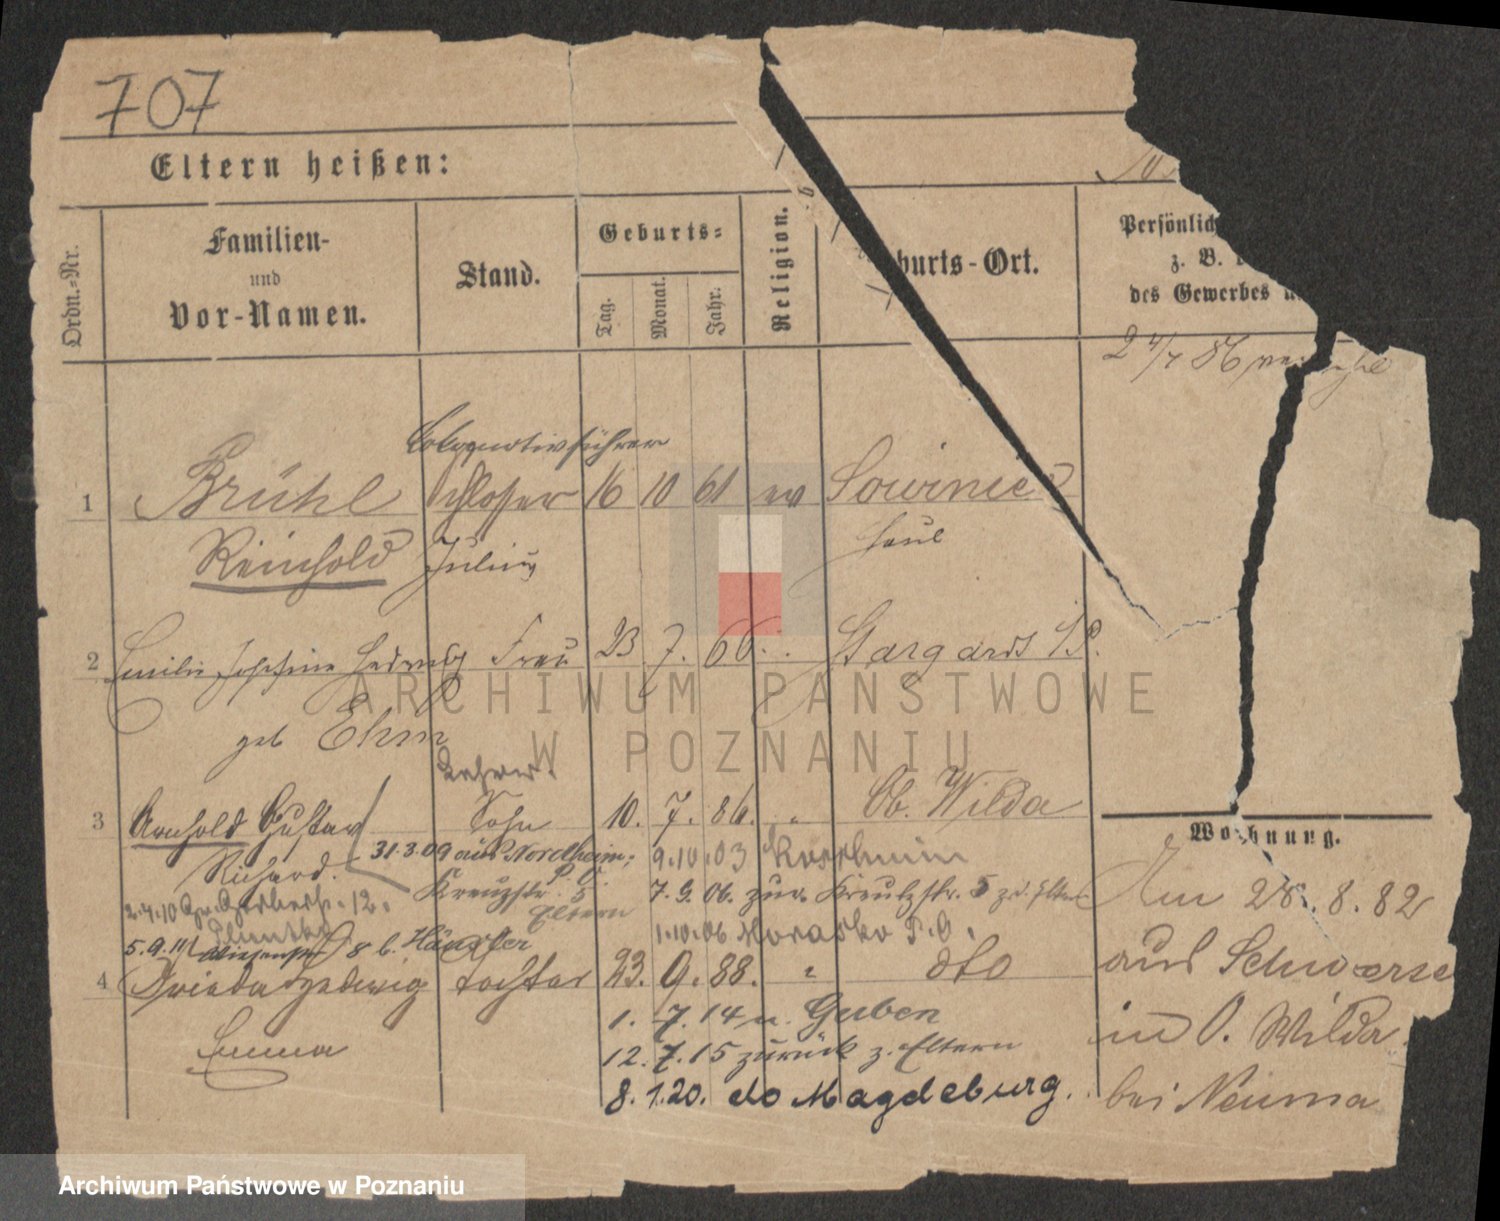 707
Eltern heißen:
Ordn.-Nr.
Familien-
und
Vor-Namen.
Stand.
Geburts-
Tag.
Monat.
Jahr.
Religion.
burts-Ort.
Persönlic
z. B.
des Gewerbes u.
2 4/7 86
Lokomotivführer
1 Brühl Schlosser 16 10 61 ev Sowiniec
Reinhold Julius
2 Emilie Josefine Hedwig Frau 23 7. 66. Stargardt
geb Ehm
Lehrer.
3 Arnhold Gustav Sohn 10. 7. 86. Ob. Wilda
Richard. 31.3.09 aus Nordheim; 9.10.03
Kreuzstr. 5. 7.9.06. zur. Kreutzstr. 5 z. d. Eltern
Eltern
2.4.10 12.
1.10.06 Morasko P.O.
5.9.11 8 b. Händler
4 Frieda Hedwig Tochter 23. 9. 88. dto
Emma
1. 7. 14 n. Guben
12. 7. 15 zurück z. Eltern
8. 1. 20. do Magdeburg.
Wohnung.
Am 28. 8. 82
aus Schwersenz
in O. Wilda
bei Neuma
ARCHIWUM PAŃSTWOWE
W POZNANIU
Archiwum Państwowe w Poznaniu